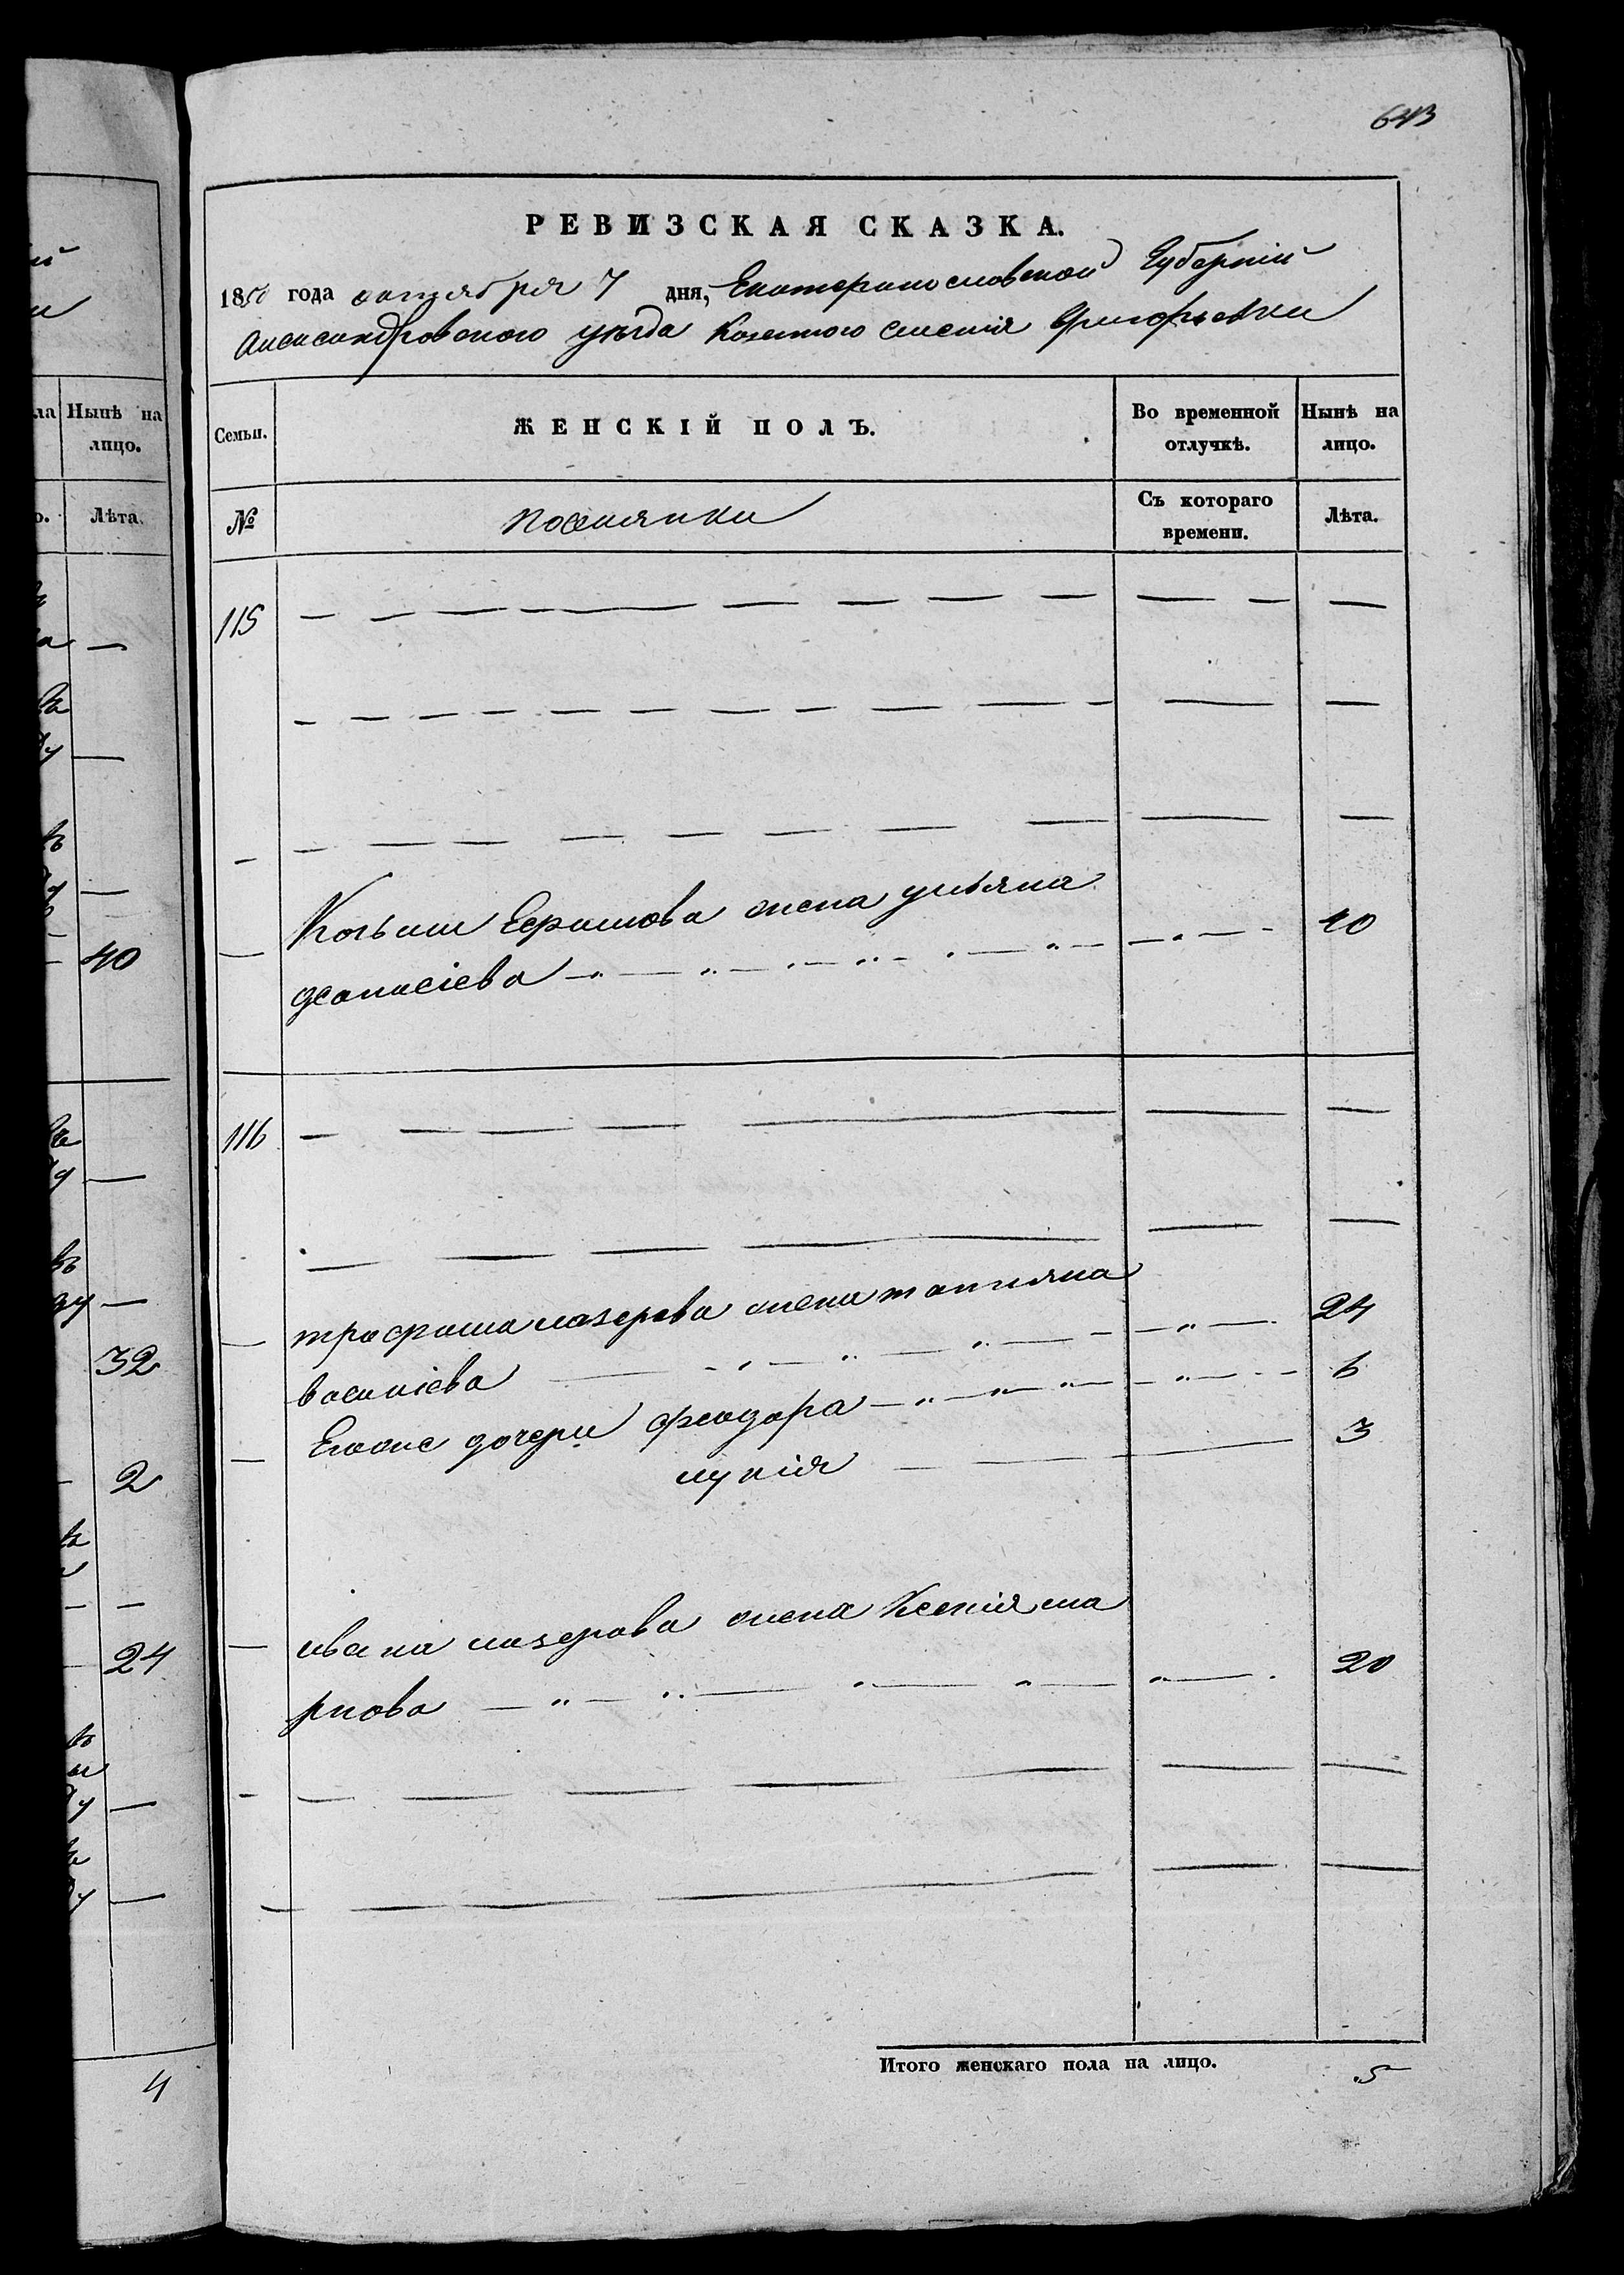 643
РЕВИЗСКАЯ СКАЗКА.
1850 года октября 7 дня, Екатеринославской Губерніи
Александровского уезда Казенного Селенія Григорьевки
Нынѣ на лицо.
Лѣта.
Семьи.
ЖЕНСКІЙ ПОЛЪ.
Во временной отлучкѣ.
Нынѣ на лицо.
№
поселянки
Съ котораго времени.
Лѣта.
115
Козьми Ефимова жена ульяна
40
40
116
трофима лазерова жена татияна
24
василіева
32
Егоже дочери феодора
6
лукія
3
2
ивана лазерова жена Ксенія ма
24
ркова
20
Итого женскаго пола на лицо.
5
4